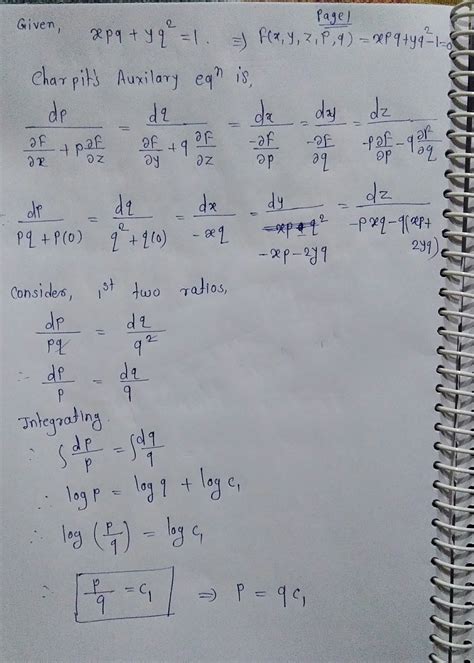 Page 1
Given, xpq + yq² = 1. ⇒ f(x, y, z, p, q) = xpq + yq² - 1 = 0
Charpit's Auxilary eqⁿ is,
dp / (∂f/∂x + p ∂f/∂z) = dq / (∂f/∂y + q ∂f/∂z) = dx / (-∂f/∂p) = dy / (-∂f/∂q) = dz / (-p ∂f/∂p - q ∂f/∂q)
dp / (pq + p(0)) = dq / (q² + q(0)) = dx / (-xq) = dy / (-xp - 2yq) = dz / (-pxq - q(xp + 2yq))
Consider, 1st two ratios,
dp / pq = dq / q²
∴ dp / p = dq / q
Integrating.
∴ ∫ dp / p = ∫ dq / q
∴ log p = log q + log c₁
∴ log (p/q) = log c₁
∴ p/q = c₁ ⇒ p = q c₁